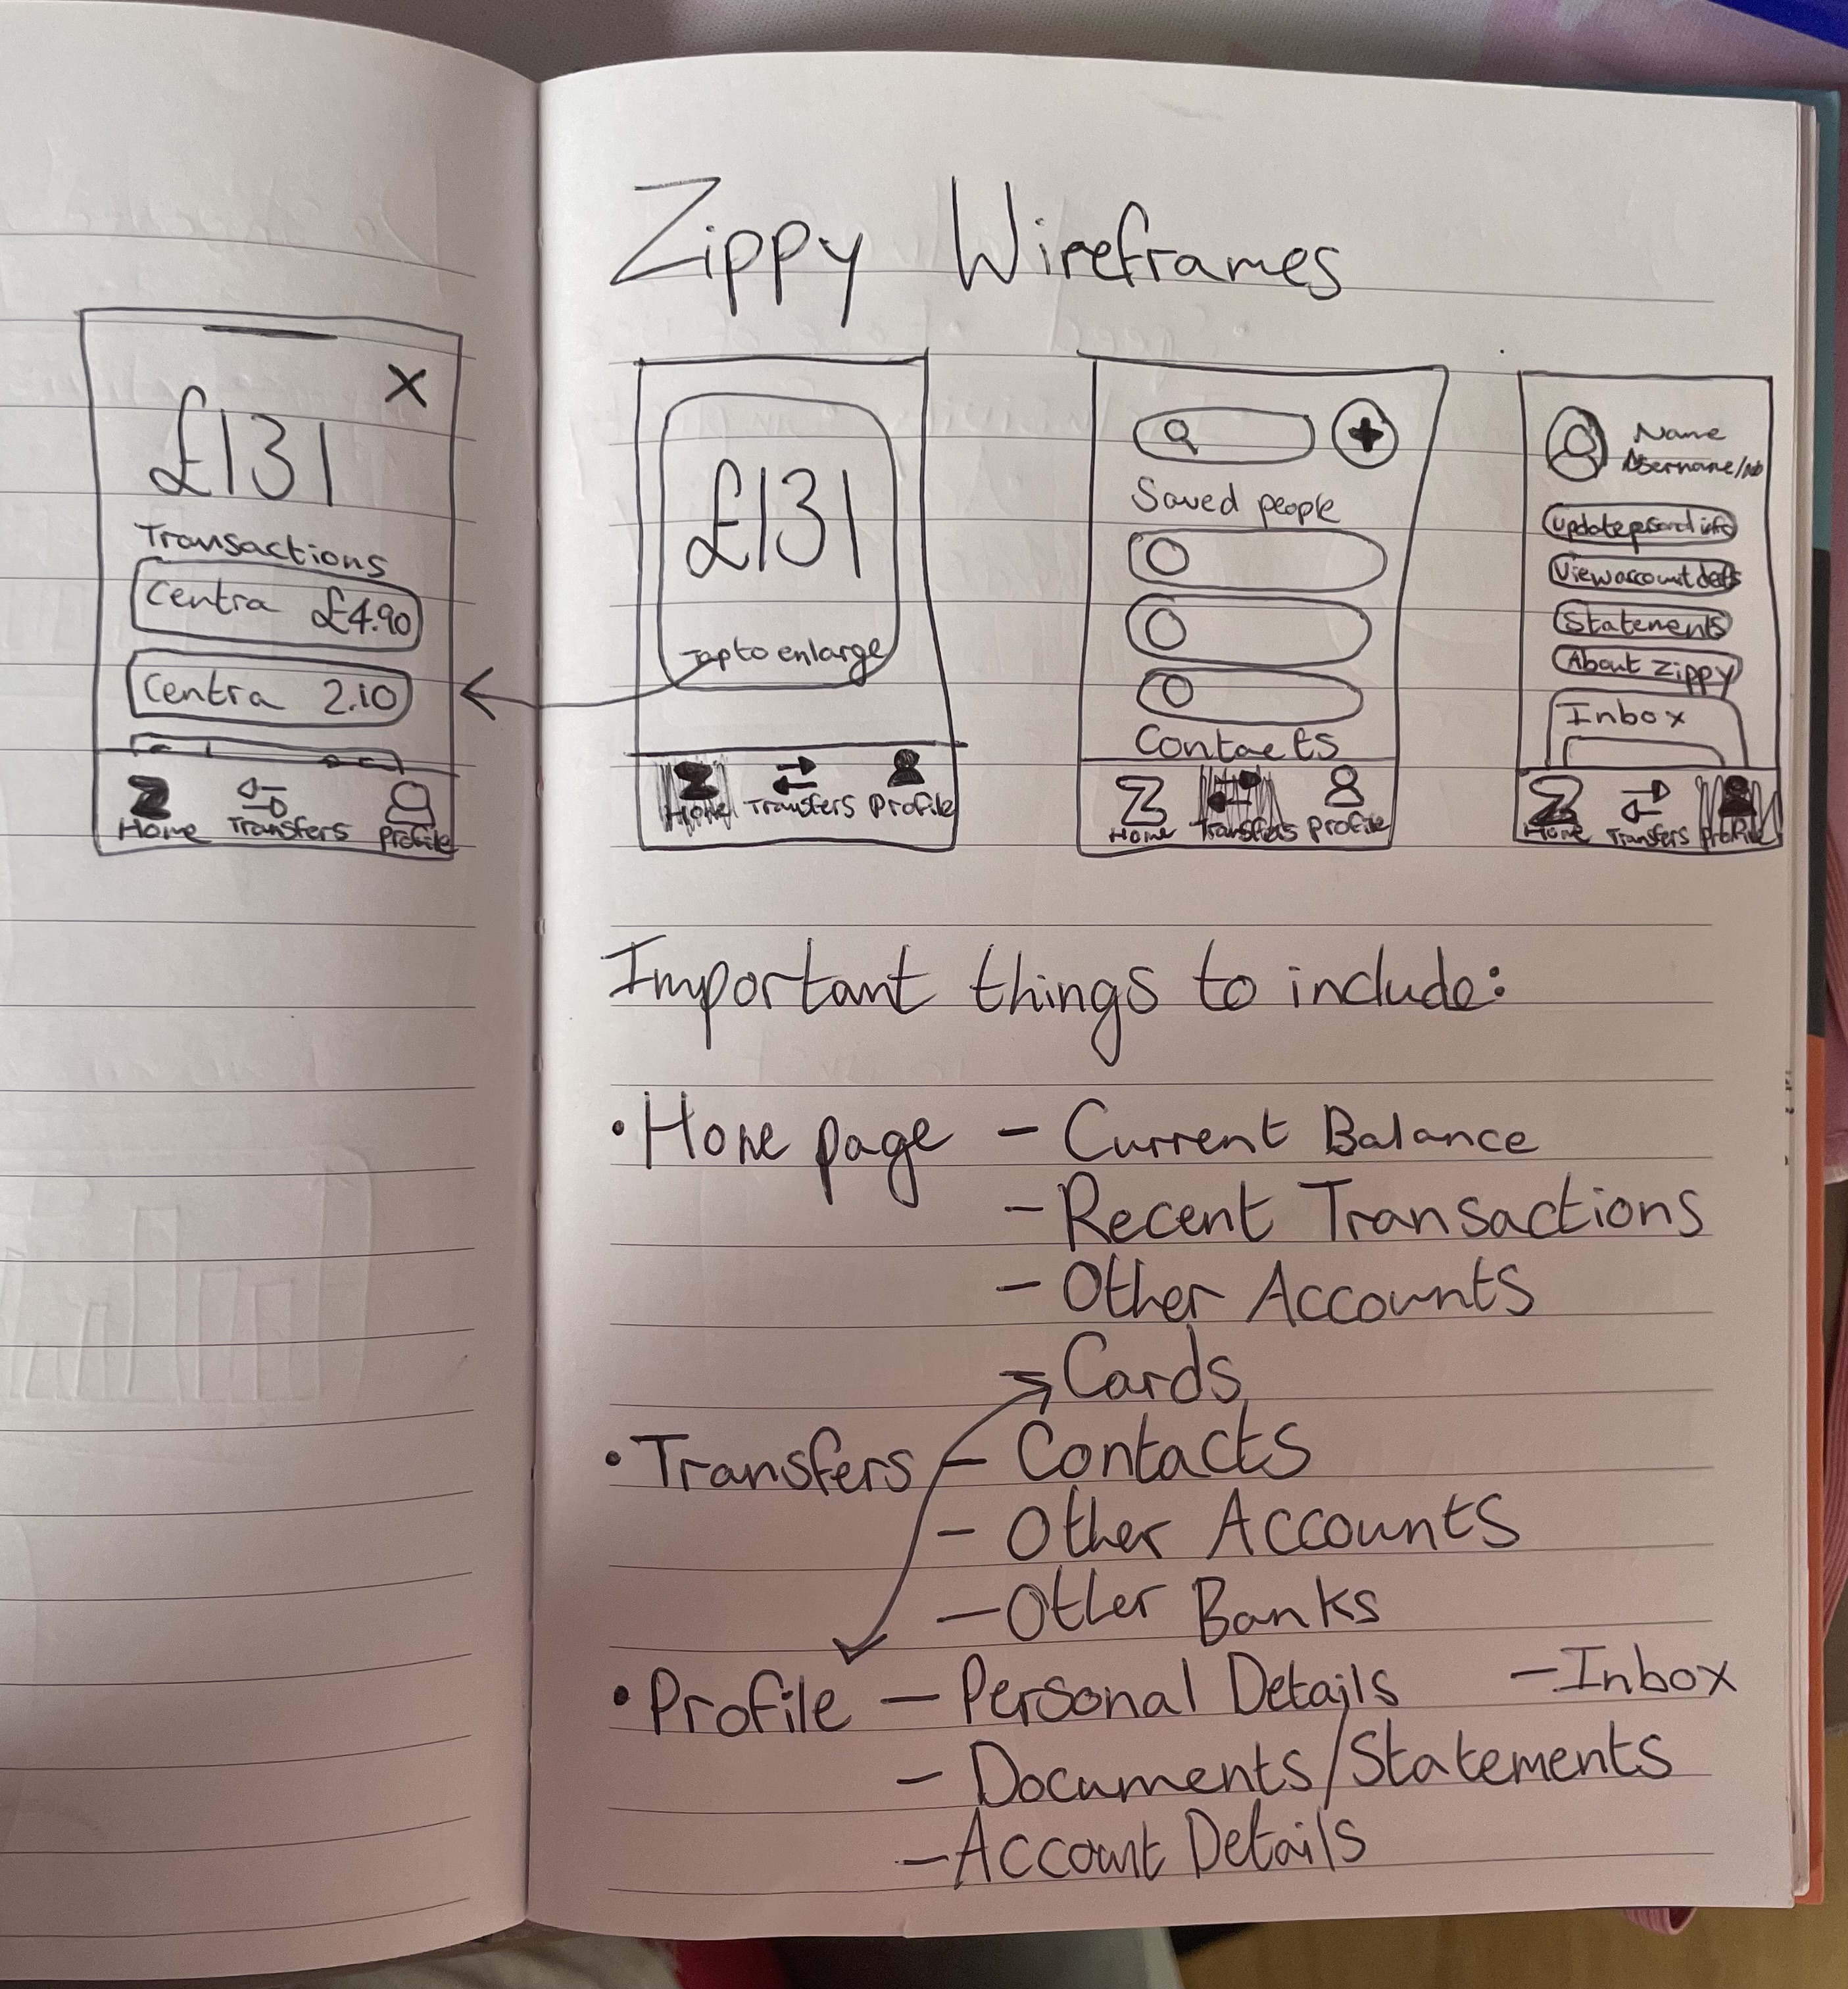 Zippy Wireframes
X
£131
Transactions
Centra £4.90
Centra 2.10
Home Transfers Profile
£131
Tap to enlarge
Home Transfers Profile
Saved people
Contacts
Home Transfers Profile
Name
Username/
Update personal info
View account
Statements
About Zippy
Inbox
Home Transfers Profile
Important things to include:
• Home page – Current Balance
– Recent Transactions
– Other Accounts
– Cards
• Transfers – Contacts
– Other Accounts
– Other Banks
• Profile – Personal Details – Inbox
– Documents/Statements
– Account Details